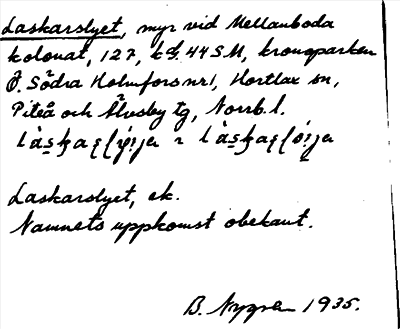 Laskarslyet, myr vid Mellanboda
kolonat, 127, k.bl. 44 S.M, kronoparken
Ö. Södra Holmfors nr 1, Hortlax sn,
Piteå och Älvsby tg, Norrb. l.
Laskarslyet, ek.
Namnets uppkomst obekant.
B. Nygren 1935.